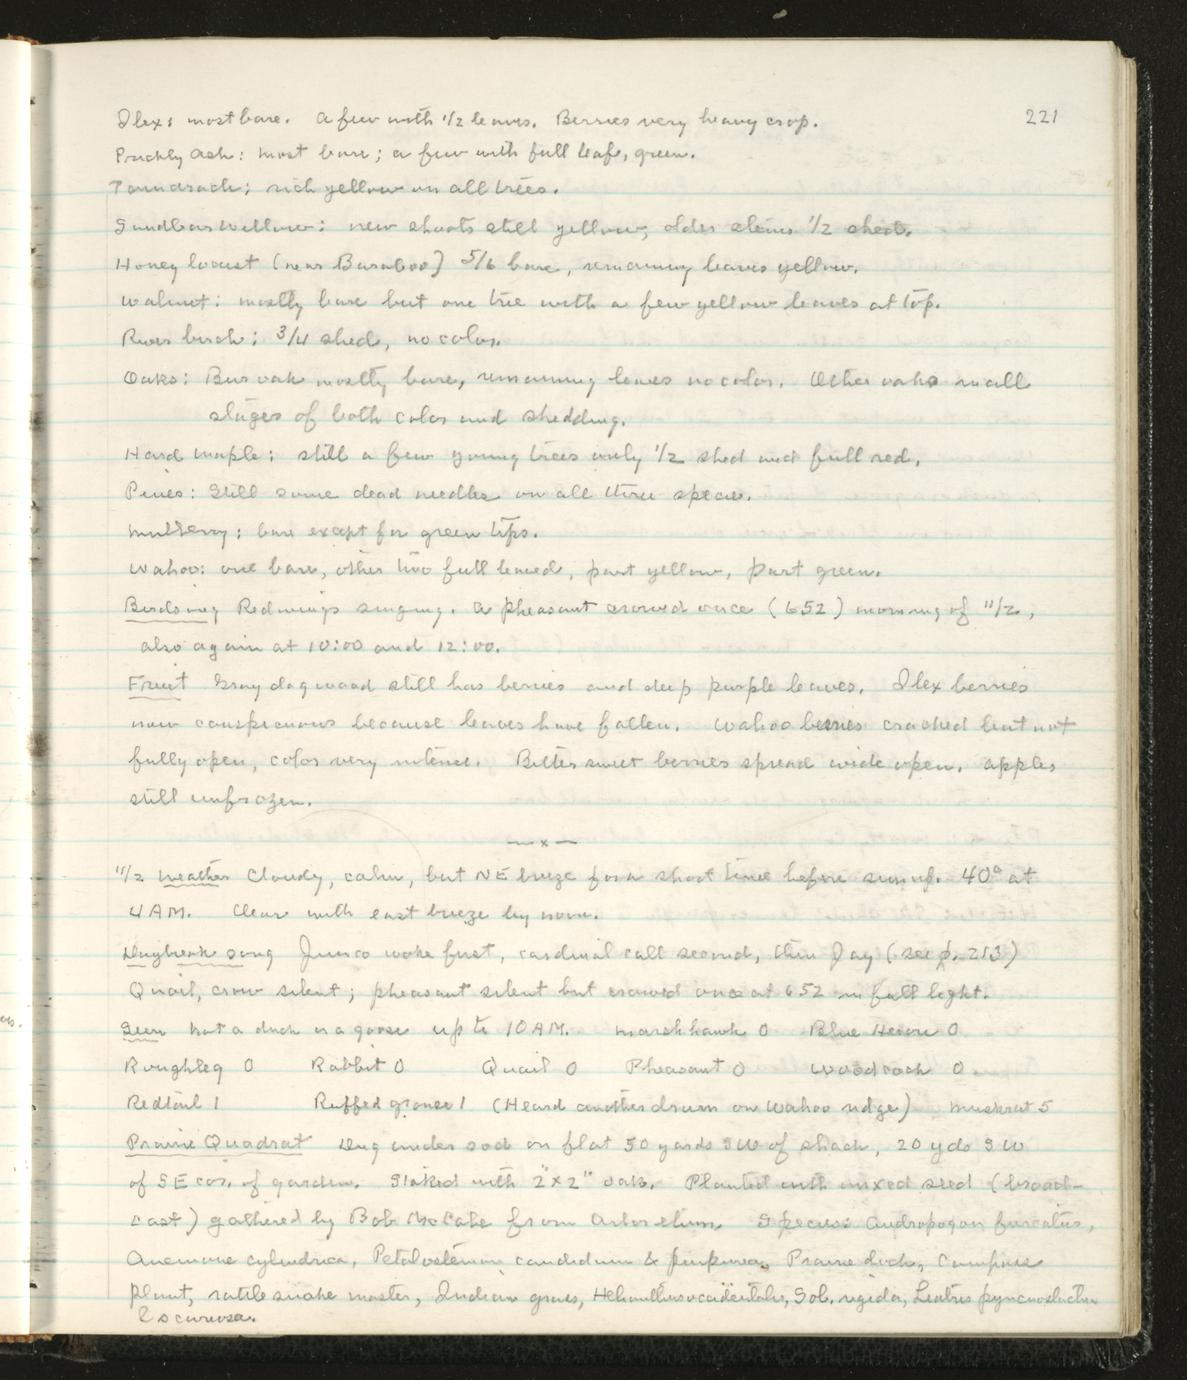 221
Ilex: most bare. A few with 1/2 leaves. Berries very heavy crop.
Prickly Ash: most bare; a few with full leaf, green.
Tamarack: rich yellow on all trees.
Sandbar Willow: new shoots still yellow, older stems 1/2 shed.
Honey locust (near Baraboo) 5/6 bare, remaining leaves yellow.
Walnut: mostly bare but one tree with a few yellow leaves at top.
River birch: 3/4 shed, no color.
Oaks: Bur oak mostly bare, remaining leaves no color. Other oaks in all
stages of both color and shedding.
Hard maple: still a few young trees only 1/2 shed and full red.
Pines: Still some dead needles on all three species.
Mulberry: bare except for green tips.
Wahoo: one bare, other two full leaved, part yellow, part green.
Birdsong Redwings singing. A pheasant crowed once (652) morning of 11/2,
also again at 10:00 and 12:00.
Fruit Gray dogwood still has berries and deep purple leaves. Ilex berries
now conspicuous because leaves have fallen. Wahoo berries cracked but not
fully open, color very intense. Bittersweet berries spread wide open. Apples
still unfrozen.
—x—
11/2 Weather Cloudy, calm, but NE breeze for a short time before sunup. 40° at
4 AM. Clear with east breeze by noon.
Daybreak song Junco woke first, cardinal call second, then Jay (see p. 213)
Quail, crow silent; pheasant silent but crowed once at 652 in full light.
Seen Not a duck or a goose up to 10 AM. Marsh hawk 0 Blue Heron 0
Roughleg 0 Rabbit 0 Quail 0 Pheasant 0 Woodcock 0
Redtail 1 Ruffed grouse 1 (Heard another drum on Wahoo ridge) Muskrat 5
Prairie Quadrat Dug under sod on flat 50 yards SW of shack, 20 yds SW
of SE cor. of garden. Staked with 2"x2" oak. Planted with mixed seed (broad-
cast) gathered by Bob McCabe from Arboretum. Species: Andropogon furcatus,
Anemone cylindrica, Petalostemum candidum & purpurea, Prairie dock, Compass
plant, rattlesnake master, Indian grass, Helianthus occidentalis, Sol. rigida, Liatris pycnostachya
& scariosa.